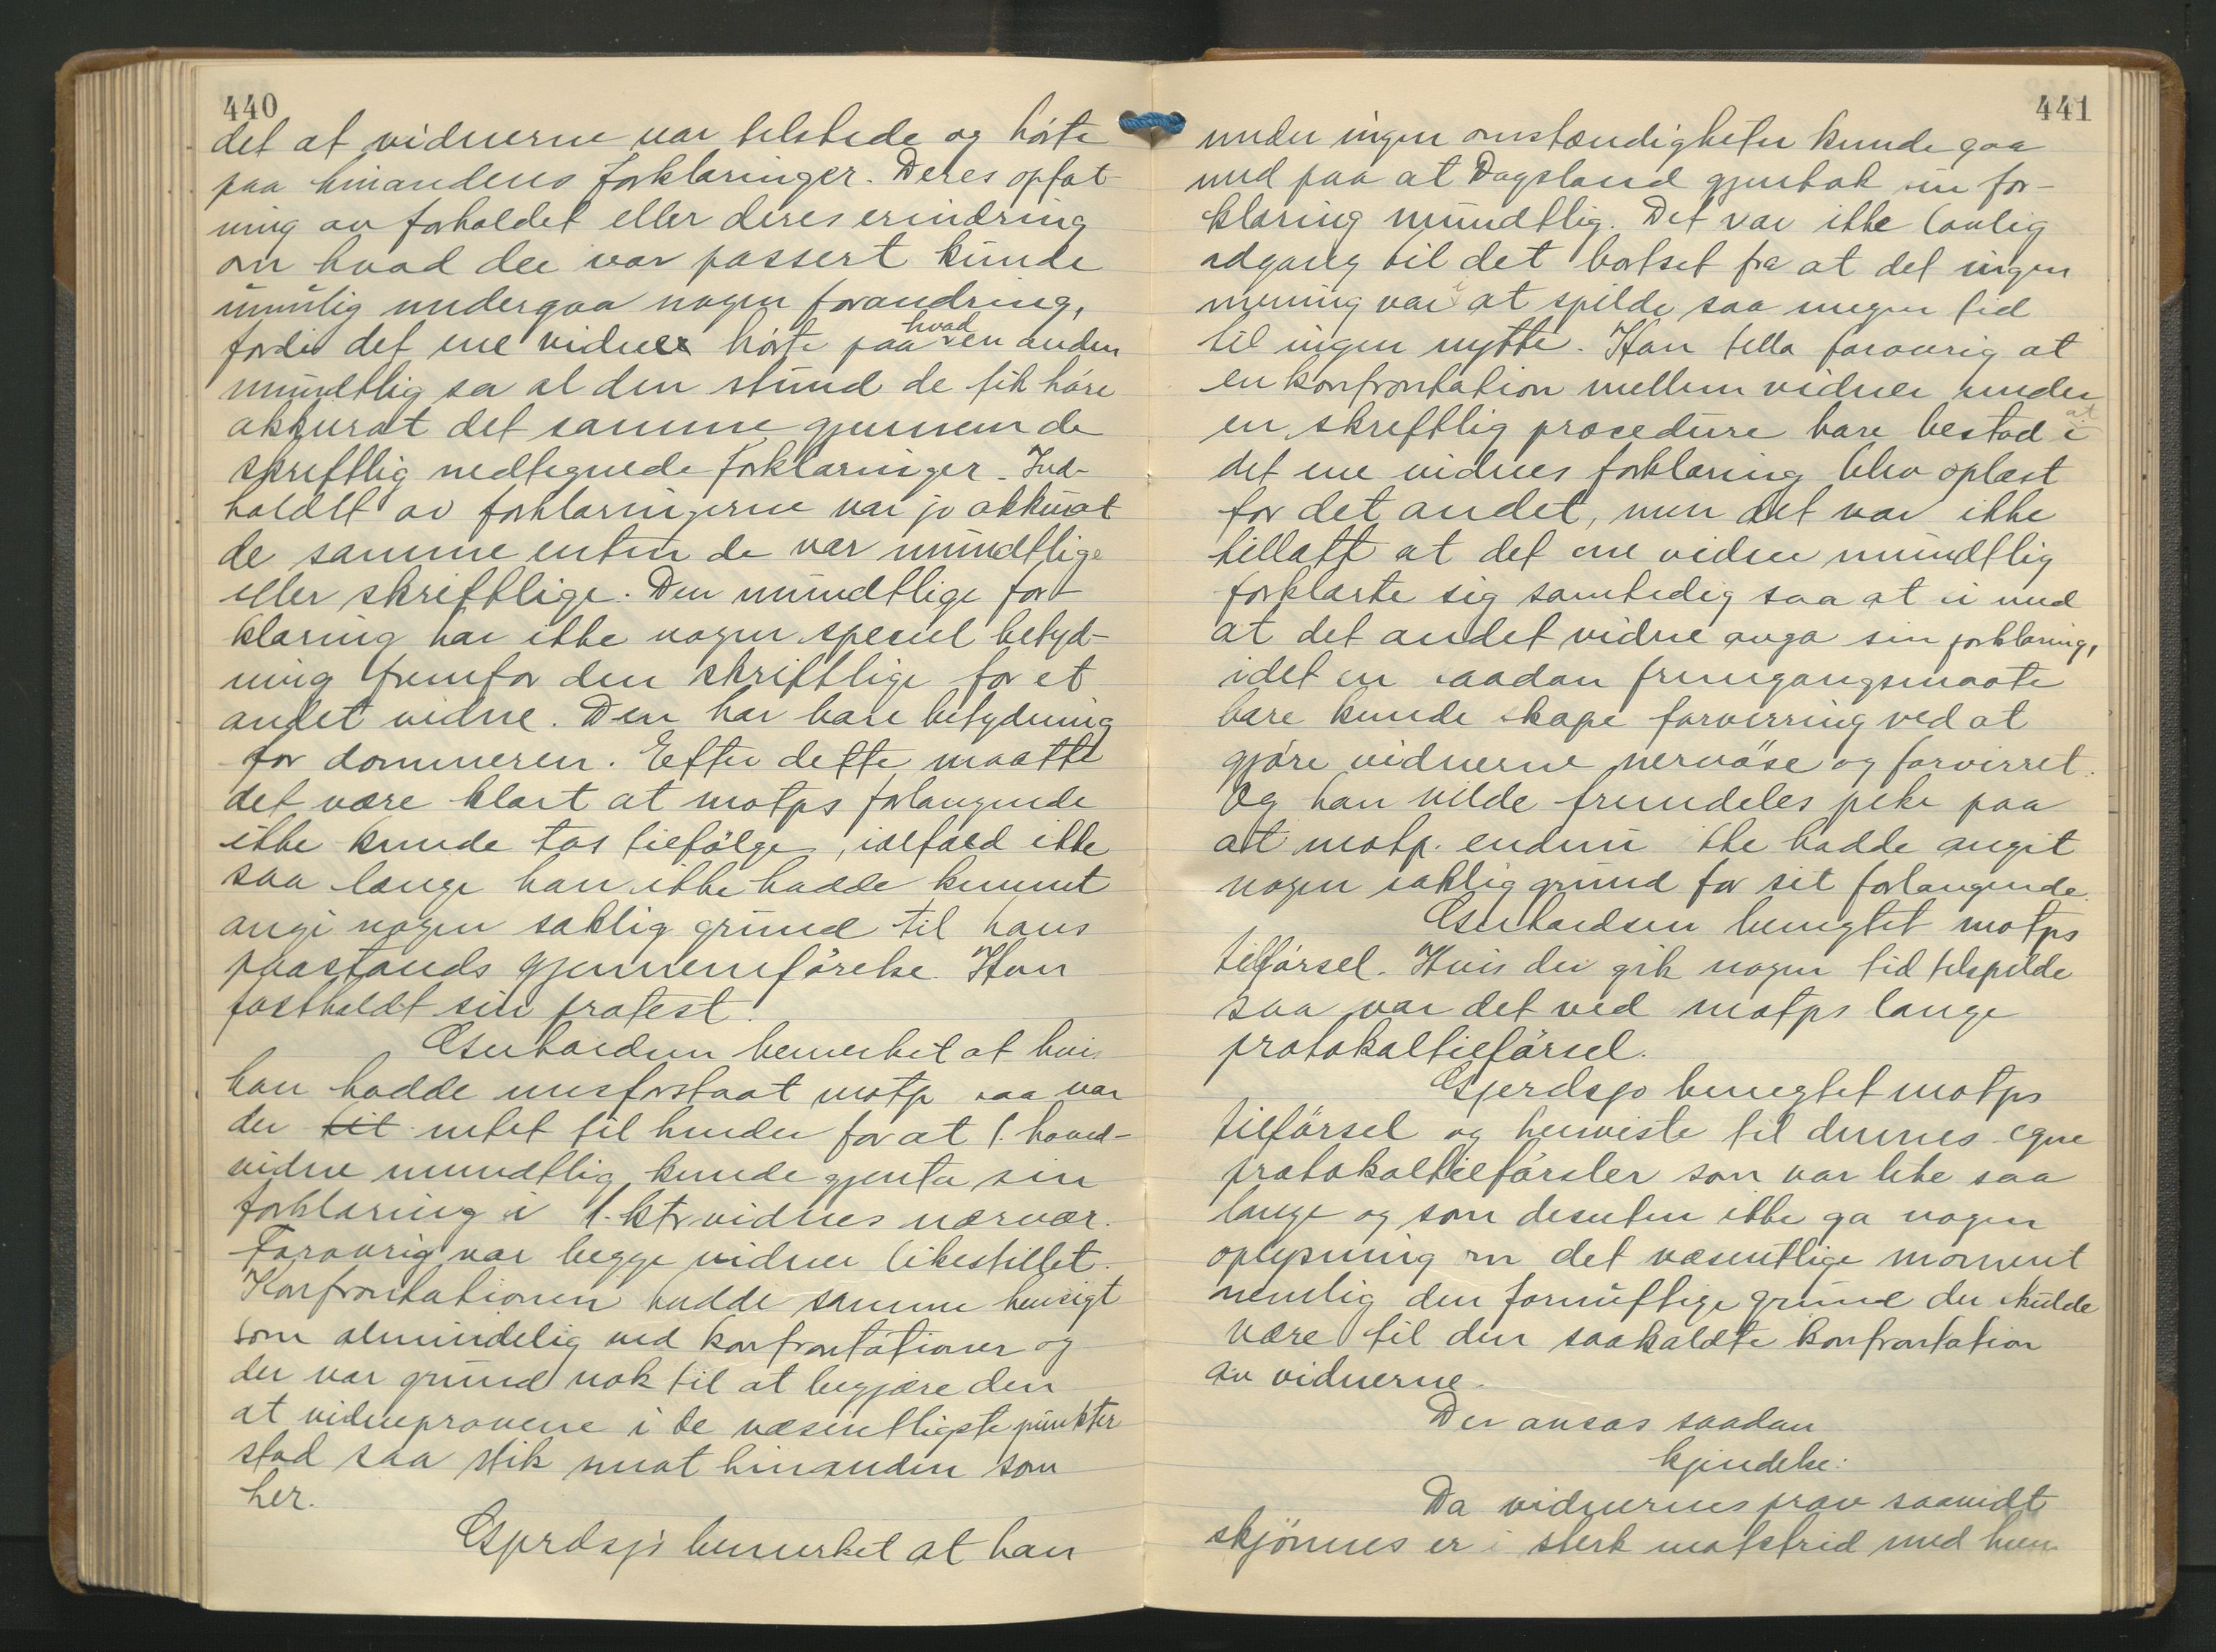 440
det at vidnerne var tilstede og hörte
paa hinandens forklaringer. Deres opfat-
ning av forholdet eller deres erindring
om hvad der var passert kunde
umulig undergaa nogen forandring,
fordi det ene vidne hörte paa hvad en anden
mundtlig sa al den stund de fik höre
akkurat det samme gjennem de
skriftlig nedtegnede forklaringer. Ind-
holdet av forklaringerne var jo akkurat
de samme enten de var mundtlige
eller skriftlige. Den mundtlige for-
klaring har ikke nogen speciel betyd-
ning fremfor den skriftlige for et
andet vidne. Den har bare betydning
for dommeren. Efter dette maatte
det være klart at motps forlangende
ikke kunde tas tilfölge, ialfald ikke
saa længe han ikke hadde kunnet
angi nogen saklig grund til hans
paastands gjennemförelse. Han
fastholdt sin protest.
bemerket at hvis
han hadde misforstaat motp saa var
der tit intet til hinder for at 1. hoved-
vidne mundtlig kunde gjenta sin
forklaring i 1. ktr vidnes nærvær.
Forövrig var begge vidner likestillet.
Konfrontationen hadde samme hensigt
som almindelig ved konfrontationer og
der var grund nok til at begjære den
at vidneprovene i de væsentligste punkter
stod saa stik imot hinanden som
her.
Gjerdsjö bemerket at han
441
under ingen omstændigheter kunde gaa
med paa at Dagsland gjentok sin for-
klaring mundtlig. Det var ikke lovlig
adgang til det bortset fra at det ingen
mening var i at spilde saa megen tid
til ingen nytte. Han  forövrig at
en konfrontation mellem vidner under
en skriftlig procedure bare bestod i at
det ene vidnes forklaring blev oplæst
for det andet, men det var ikke
tillatt at det ene vidne mundtlig
forklarte sig samtidig saa at si med
at det andet vidne avga sin forklaring,
idet en saadan fremgangsmaate
bare kunde skape forvirring ved at
gjöre vidnerne nervöse og forvirret.
Og han vilde fremdeles peke paa
at motp. endnu ikke hadde angit
nogen saklig grund for sit forlangende.
benegtet motps
tilförsel. Hvis der gik nogen tid tilspilde
saa var det ved motps lange
protokoltilförsel.
Gjerdsjö benegtet motps
tilförsel og henviste til dennes egne
protokoltilförsler som var like saa
lange og som desuten ikke ga nogen
oplysning om det væsentlige moment
nemlig den fornuftige grund der skulde
være til den saakaldte konfrontation
av vidnerne.
Der avsas saadan
kjendelse:
Da vidnernes prov saavidt
skjönnes er i sterk motstrid med hin-